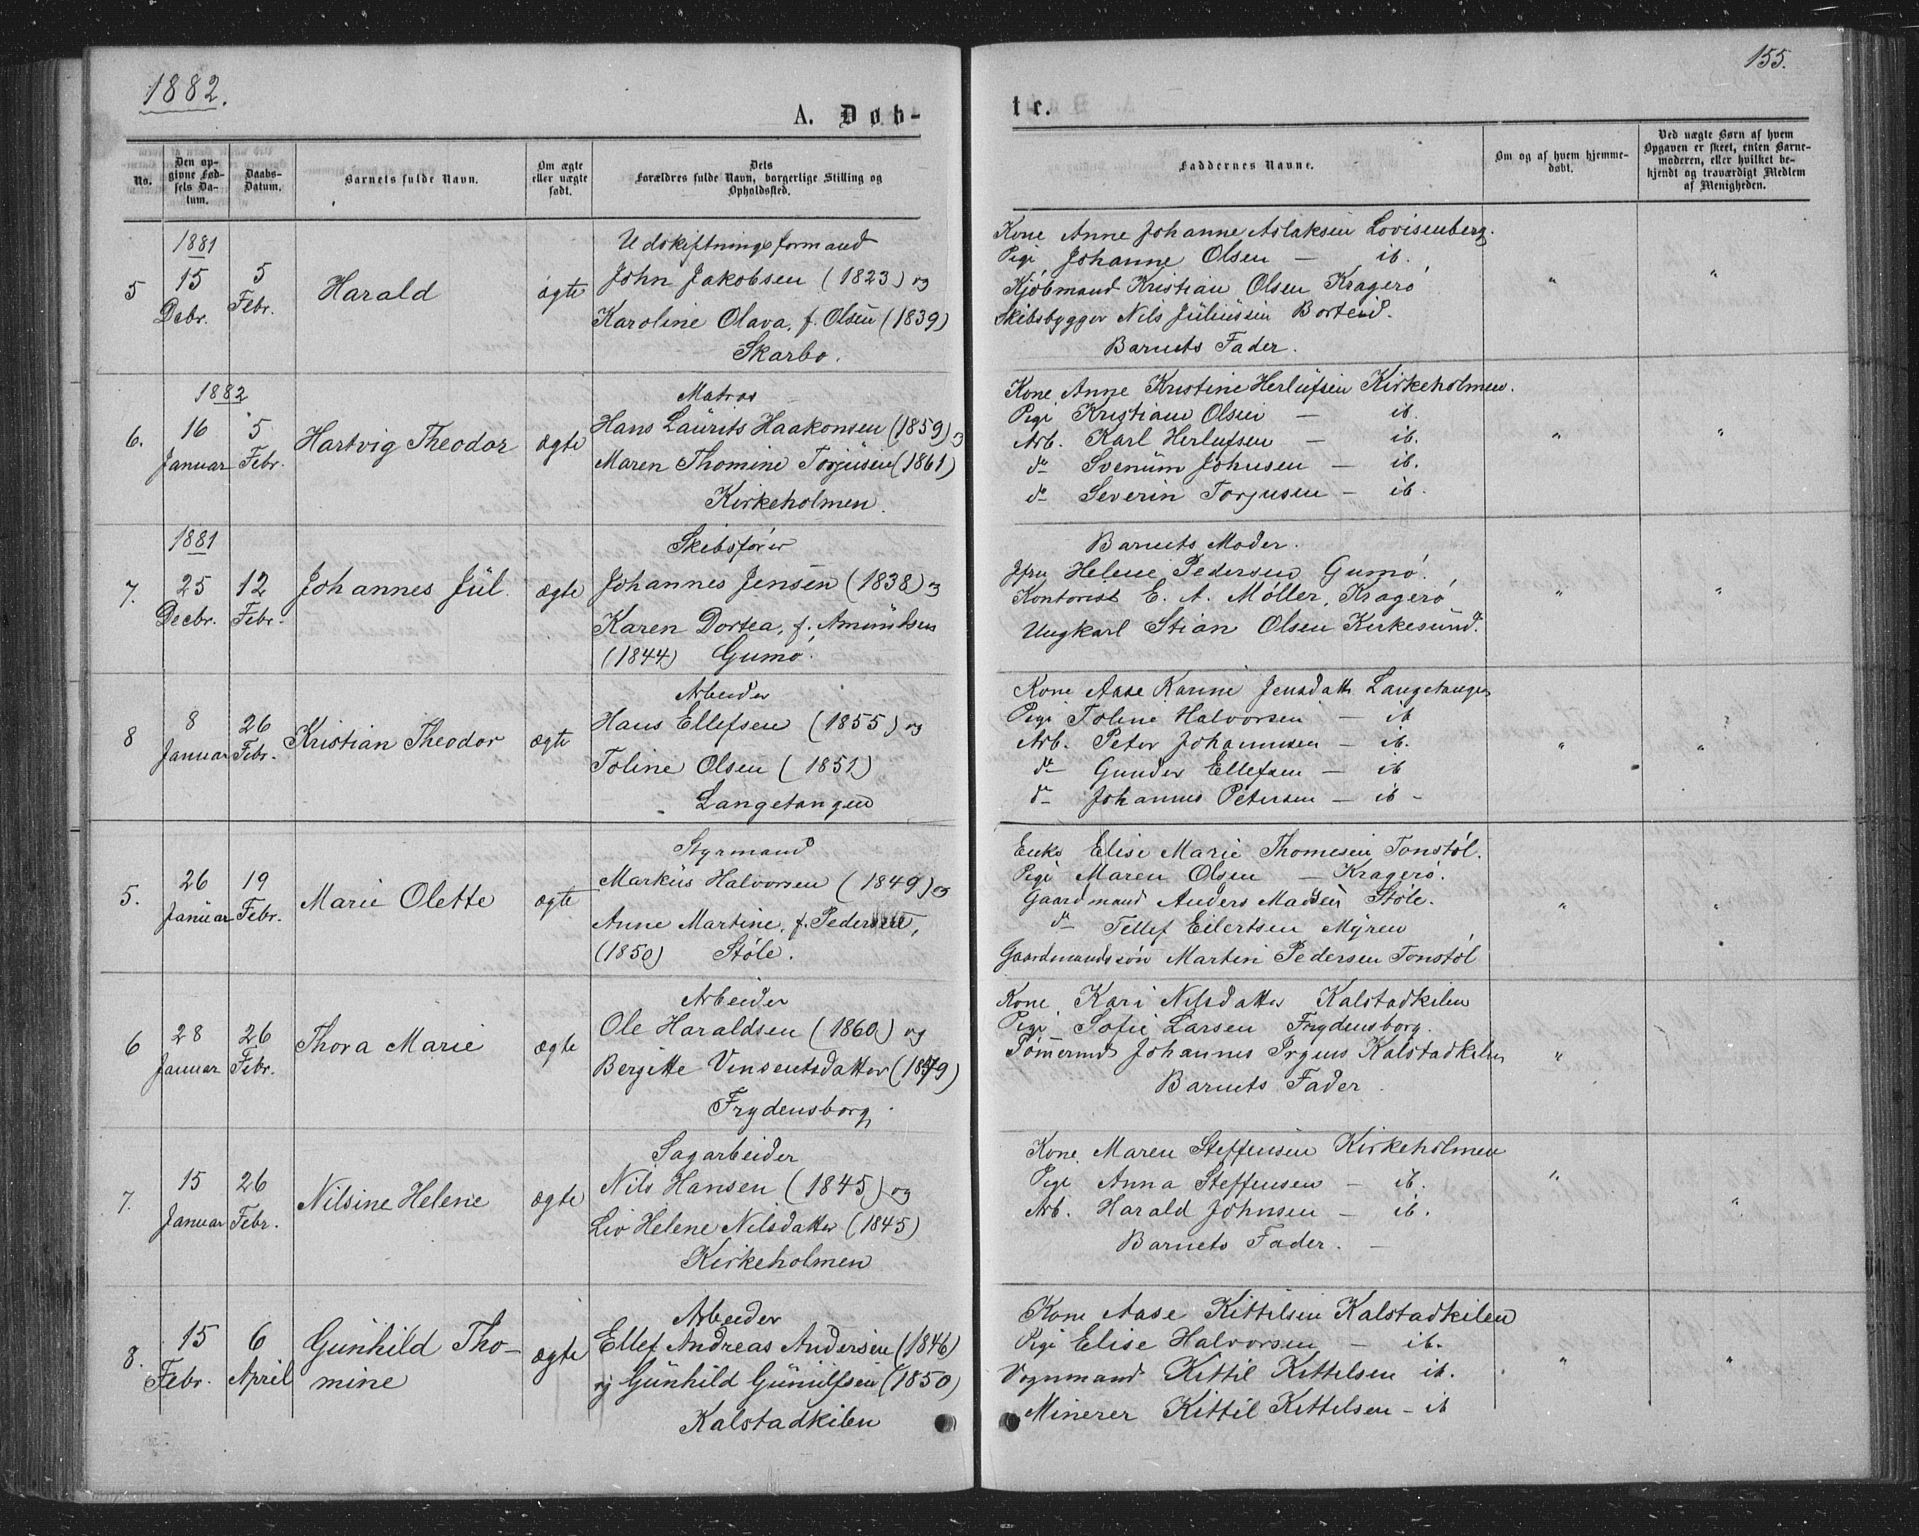 1882.
155.
A. Døb-
tr.
No.
Den op-
givne Fød-
sels Da-
tum.
Daabs-
Datum.
Barnets fulde Navn.
Om ægte
eller uægte
født.
Dets
Forældres fulde Navn, borgerlige Stilling og
Opholdssted.
Faddernes Navne.
Om og af hvem hjemme-
døbt.
Ved uægte Børn af hvem
Opgaven er skeet, enten Barne-
moderen, eller hvilket be-
kjendt og troværdigt Medlem
af Menigheden.
5
1881
15
Decbr.
5
Febr.
Harald
ægte
Udskiftningsformand
John Jakobsen (1823) og
Karoline Olava, f. Olsen (1839)
Skarbo.
Kone Anne Johanne Aslaksen Lovisenberg.
Pige Johanne Olsen — ib.
Kjøbmand Kristian Olsen Kragerø
Skibsbygger Nils Juliussen Borteid.
Barnets Fader.
"
"
6.
1882
16
Januar
5
Febr.
Hartvig Theodor
ægte
Matros
Hans Laurits Haakonsen (1859) og
Maren Thomine Torjusen (1861)
Kirkeholmen.
Kone Anne Kristine Herlufsen Kirkeholmen.
Pige Kristiane Olsen — ib.
Arb. Karl Herlufsen — ib.
do Svenum Johnsen — ib.
do Severin Torjusen — ib.
"
"
7.
1881
25
Decbr.
12
Febr.
Johannes Jul.
ægte
Skibsfører
Johannes Jensen (1838) og
Karen Dortea, f. Amundsen
(1844) Gumø.
Barnets Moder.
Jfru Helene Pedersen Gumø.
Kontorist E. A. Møller, Kragerø
Ungkarl Stian Olsen Kirkesund.
"
"
8
8
Januar
26
Febr.
Kristian Theodor
ægte
Arbeider
Hans Ellefsen (1855) og
Toline Olsen (1851)
Langetangen
Kone Aase Karine Jensdatt. Langetangen
Pige Toline Halvorsen — ib
Arb. Peter Johannesen — ib.
do Gunder Ellefsen — ib
do Johannes Petersen — ib -
"
"
5.
26
Januar
19
Febr.
Marie Olette
ægte
Styrmand
Markus Halvorsen (1849) og
Anne Martine, f. Pedersen,
(1850) Støle.
Enke Elise Marie Thomesen Tonstøl.
Pige Maren Olsen — Kragerø.
Gaardmand Anders Madsen Støle.
do Tellef Eilertsen Myren
Gaardmandssøn Martin Pedersen Tonstøl
"
"
6
28
Januar
26
Febr.
Thora Marie
ægte
Arbeider
Ole Haraldsen (1860) og
Bergitte Vinsentsdatter (1849)
Frydensborg.
Kone Kari Nilsdatter Kalstadkilen
Pige Sofie Larsen Frydensborg.
Johannes Kalstadkilen
Barnets Fader.
"
7.
15
Januar
26
Febr.
Nilsine Helene
ægte
Sagarbeider
Nils Hansen (1845) og
Liv Helene Nilsdatter (1845)
Kirkeholmen
Kone Maren Steffensen Kirkeholmen
Pige Anna Steffensen — ib.
Arb. Harald Johnsen — ib.
Barnets Fader. —
"
"
8.
15
Febr.
6
April
Gunhild Tho-
mine
ægte
Arbeider
Ellef Andreas Andersen (1846)
og Gunhild Gunulfsen (1850)
Kalstadkilen
Kone Aase Kittilsen Kalstadkilen
Pige Elise Halvorsen — ib.
Vognmand Kittil Kittelsen ib.
Minerer Kittil Kittelsen - ib
"
"